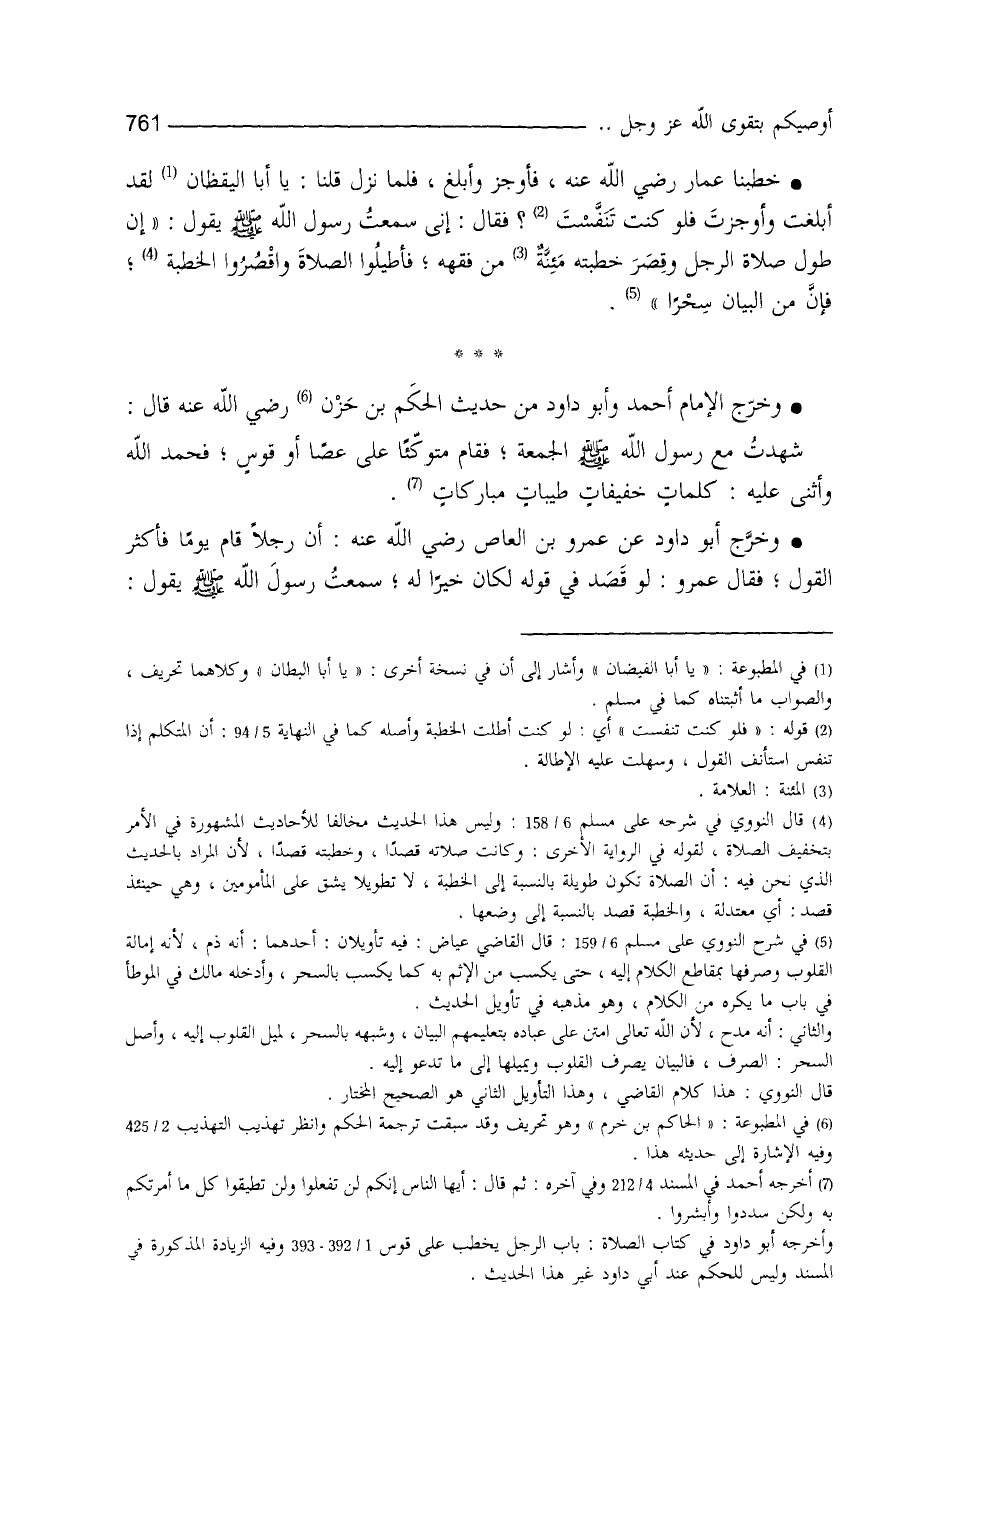 أوصيكم بتقوى الله عز وجل .. 761
● خطبنا عمار رضي الله عنه ، فأوجز وأبلغ ، فلما نزل قلنا : يا أبا اليقظان (1) لقد
أبلغت وأوجزتَ فلو كنت تَنَفَّسْتَ (2) ؟ فقال : إنى سمعتُ رسول الله ﷺ يقول : « إن
طول صلاة الرجل وقِصَرَ خطبته مَئِنَّةٌ (3) من فقهه ؛ فأطيلُوا الصلاةَ واقْصُرُوا الخطبة (4) ؛
فإنَّ من البيان سِحْرًا » (5) .
* * *
● وخرّج الإمام أحمد وأبو داود من حديث الحكَم بن حَزْن (6) رضي الله عنه قال :
شهدتُ مع رسول الله ﷺ الجمعة ؛ فقام متوكّئًا على عصًا أو قوسٍ ؛ فحمد الله
وأثنى عليه : كلماتٍ خفيفاتٍ طيباتٍ مباركاتٍ (7) .
● وخرَّج أبو داود عن عمرو بن العاص رضي الله عنه : أن رجلاً قام يومًا فأكثر
القول ؛ فقال عمرو : لو قَصَد في قوله لكان خيرًا له ؛ سمعتُ رسولَ الله ﷺ يقول :
(1) في المطبوعة : « يا أبا الفيضان » وأشار إلى أن في نسخة أخرى : « يا أبا البطان » وكلاهما تحريف ،
والصواب ما أثبتناه كما في مسلم .
(2) قوله : « فلو كنت تنفست » أي : لو كنت أطلت الخطبة وأصله كما في النهاية 5/ 94 : أن المتكلم إذا
تنفس استأنف القول ، وسهلت عليه الإطالة .
(3) المئنة : العلامة .
(4) قال النووي في شرحه على مسلم 6/ 158 : وليس هذا الحديث مخالفا للأحاديث المشهورة في الأمر
بتخفيف الصلاة ، لقوله في الرواية الأخرى : وكانت صلاته قصدًا ، وخطبته قصدًا ، لأن المراد بالحديث
الذي نحن فيه : أن الصلاة تكون طويلة بالنسبة إلى الخطبة ، لا تطويلا يشق على المأمومين ، وهي حينئذ
قصد : أي معتدلة ، والخطبة قصد بالنسبة إلى وضعها .
(5) في شرح النووي على مسلم 6/ 159 : قال القاضي عياض : فيه تأويلان : أحدهما : أنه ذم ، لأنه إمالة
القلوب وصرفها بمقاطع الكلام إليه ، حتى يكسب من الإثم به كما يكسب بالسحر ، وأدخله مالك في الموطأ
في باب ما يكره من الكلام ، وهو مذهبه في تأويل الحديث .
والثاني : أنه مدح ، لأن الله تعالى امتن على عباده بتعليمهم البيان ، وشبهه بالسحر ، لميل القلوب إليه ، وأصل
السحر : الصرف ، فالبيان يصرف القلوب ويميلها إلى ما تدعو إليه .
قال النووي : هذا كلام القاضي ، وهذا التأويل الثاني هو الصحيح المختار .
(6) في المطبوعة : « الحاكم بن خرم » وهو تحريف وقد سبقت ترجمة الحكم وانظر تهذيب التهذيب 2/ 425
وفيه الإشارة إلى حديثه هذا .
(7) أخرجه أحمد في المسند 4/ 212 وفي آخره : ثم قال : أيها الناس إنكم لن تفعلوا ولن تطيقوا كل ما أمرتكم
به ولكن سددوا وأبشروا .
وأخرجه أبو داود في كتاب الصلاة : باب الرجل يخطب على قوس 1/ 392 - 393 وفيه الزيادة المذكورة في
المسند وليس للحكم عند أبي داود غير هذا الحديث .